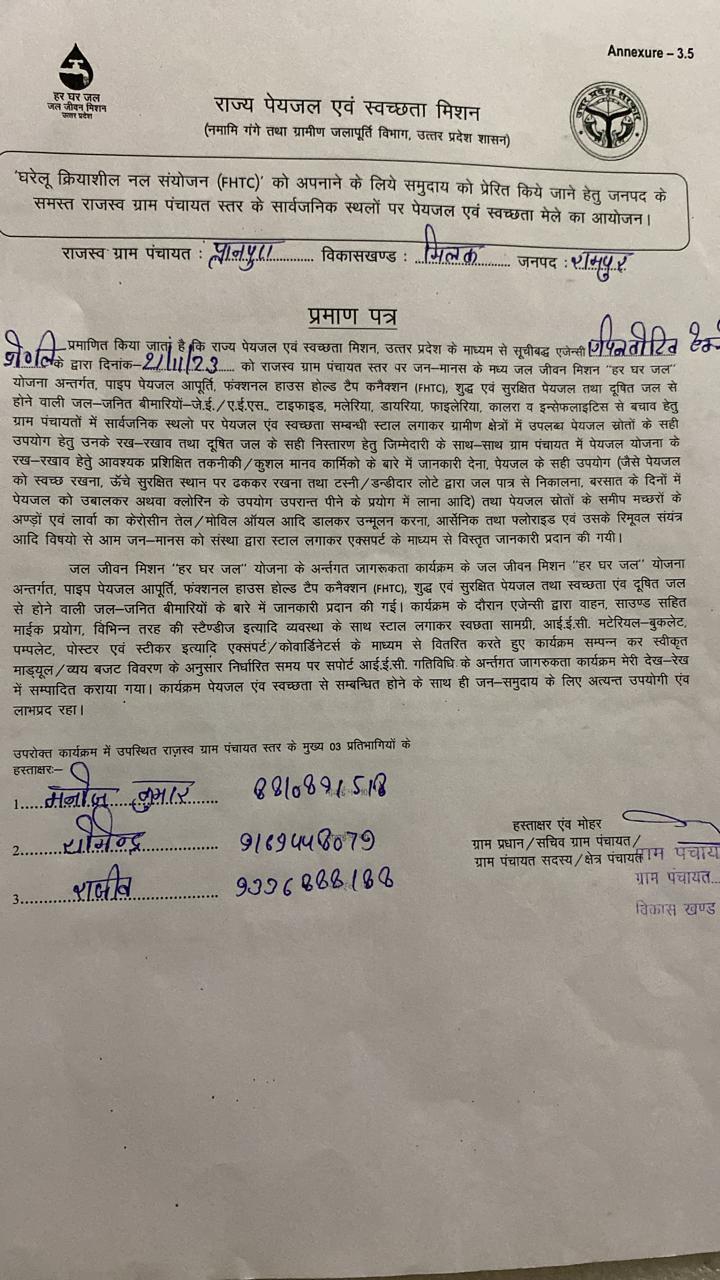 Annexure – 3.5
हर घर जल
जल जीवन मिशन
उत्तर प्रदेश
राज्य पेयजल एवं स्वच्छता मिशन
(नमामि गंगे तथा ग्रामीण जलापूर्ति विभाग, उत्तर प्रदेश शासन)
उत्तर प्रदेश सरकार
'घरेलू क्रियाशील नल संयोजन (FHTC)' को अपनाने के लिये समुदाय को प्रेरित किये जाने हेतु जनपद के
समस्त राजस्व ग्राम पंचायत स्तर के सार्वजनिक स्थलों पर पेयजल एवं स्वच्छता मेले का आयोजन।
राजस्व ग्राम पंचायत : ............... विकासखण्ड : मिलक जनपद : रामपुर
प्रमाण पत्र
प्रमाणित किया जाता है कि राज्य पेयजल एवं स्वच्छता मिशन, उत्तर प्रदेश के माध्यम से सूचीबद्ध एजेन्सी
के द्वारा दिनांक-21/11/23 को राजस्व ग्राम पंचायत स्तर पर जन-मानस के मध्य जल जीवन मिशन "हर घर जल"
योजना अन्तर्गत, पाइप पेयजल आपूर्ति, फंक्शनल हाउस होल्ड टैप कनैक्शन (FHTC), शुद्ध एवं सुरक्षित पेयजल तथा दूषित जल से
होने वाली जल-जनित बीमारियों-जे.ई./ए.ई.एस., टाइफाइड, मलेरिया, डायरिया, फाइलेरिया, कालरा व इन्सेफलाइटिस से बचाव हेतु
ग्राम पंचायतों में सार्वजनिक स्थलो पर पेयजल एवं स्वच्छता सम्बन्धी स्टाल लगाकर ग्रामीण क्षेत्रों में उपलब्ध पेयजल स्रोतों के सही
उपयोग हेतु उनके रख-रखाव तथा दूषित जल के सही निस्तारण हेतु जिम्मेदारी के साथ-साथ ग्राम पंचायत में पेयजल योजना के
रख-रखाव हेतु आवश्यक प्रशिक्षित तकनीकी/कुशल मानव कार्मिको के बारे में जानकारी देना, पेयजल के सही उपयोग (जैसे पेयजल
को स्वच्छ रखना, ऊँचे सुरक्षित स्थान पर ढककर रखना तथा टस्नी/डन्डीदार लोटे द्वारा जल पात्र से निकालना, बरसात के दिनों में
पेयजल को उबालकर अथवा क्लोरिन के उपयोग उपरान्त पीने के प्रयोग में लाना आदि) तथा पेयजल स्रोतों के समीप मच्छरों के
अण्ड़ों एवं लार्वा का केरोसीन तेल/मोविल ऑयल आदि डालकर उन्मूलन करना, आर्सेनिक तथा फ्लोराइड एवं उसके रिमूवल संयंत्र
आदि विषयो से आम जन-मानस को संस्था द्वारा स्टाल लगाकर एक्सपर्ट के माध्यम से विस्तृत जानकारी प्रदान की गयी।
जल जीवन मिशन "हर घर जल" योजना के अर्न्तगत जागरूकता कार्यक्रम के जल जीवन मिशन "हर घर जल" योजना
अन्तर्गत, पाइप पेयजल आपूर्ति, फंक्शनल हाउस होल्ड टैप कनैक्शन (FHTC), शुद्ध एवं सुरक्षित पेयजल तथा स्वच्छता एंव दूषित जल
से होने वाली जल-जनित बीमारियों के बारे में जानकारी प्रदान की गई। कार्यक्रम के दौरान एजेन्सी द्वारा वाहन, साउण्ड सहित
माईक प्रयोग, विभिन्न तरह की स्टैण्डीज इत्यादि व्यवस्था के साथ स्टाल लगाकर स्वछता सामग्री, आई.ई.सी. मटेरियल-बुकलेट,
पम्पलेट, पोस्टर एवं स्टीकर इत्यादि एक्सपर्ट/कोवार्डिनेटर्स के माध्यम से वितरित करते हुए कार्यक्रम सम्पन्न कर स्वीकृत
माड्यूल/व्यय बजट विवरण के अनुसार निर्धारित समय पर सपोर्ट आई.ई.सी. गतिविधि के अर्न्तगत जागरुकता कार्यक्रम मेरी देख-रेख
में सम्पादित कराया गया। कार्यक्रम पेयजल एंव स्वच्छता से सम्बन्धित होने के साथ ही जन-समुदाय के लिए अत्यन्त उपयोगी एंव
लाभप्रद रहा।
उपरोक्त कार्यक्रम में उपस्थित राज़स्व ग्राम पंचायत स्तर के मुख्य 03 प्रतिभागियों के
हस्ताक्षरः-
1. मनोज कुमार 8810891518
2. 9169448079
3. राजीव
हस्ताक्षर एंव मोहर
ग्राम प्रधान/सचिव ग्राम पंचायत/
ग्राम पंचायत सदस्य/क्षेत्र पंचायत
ग्राम पंचायत...
विकास खण्ड